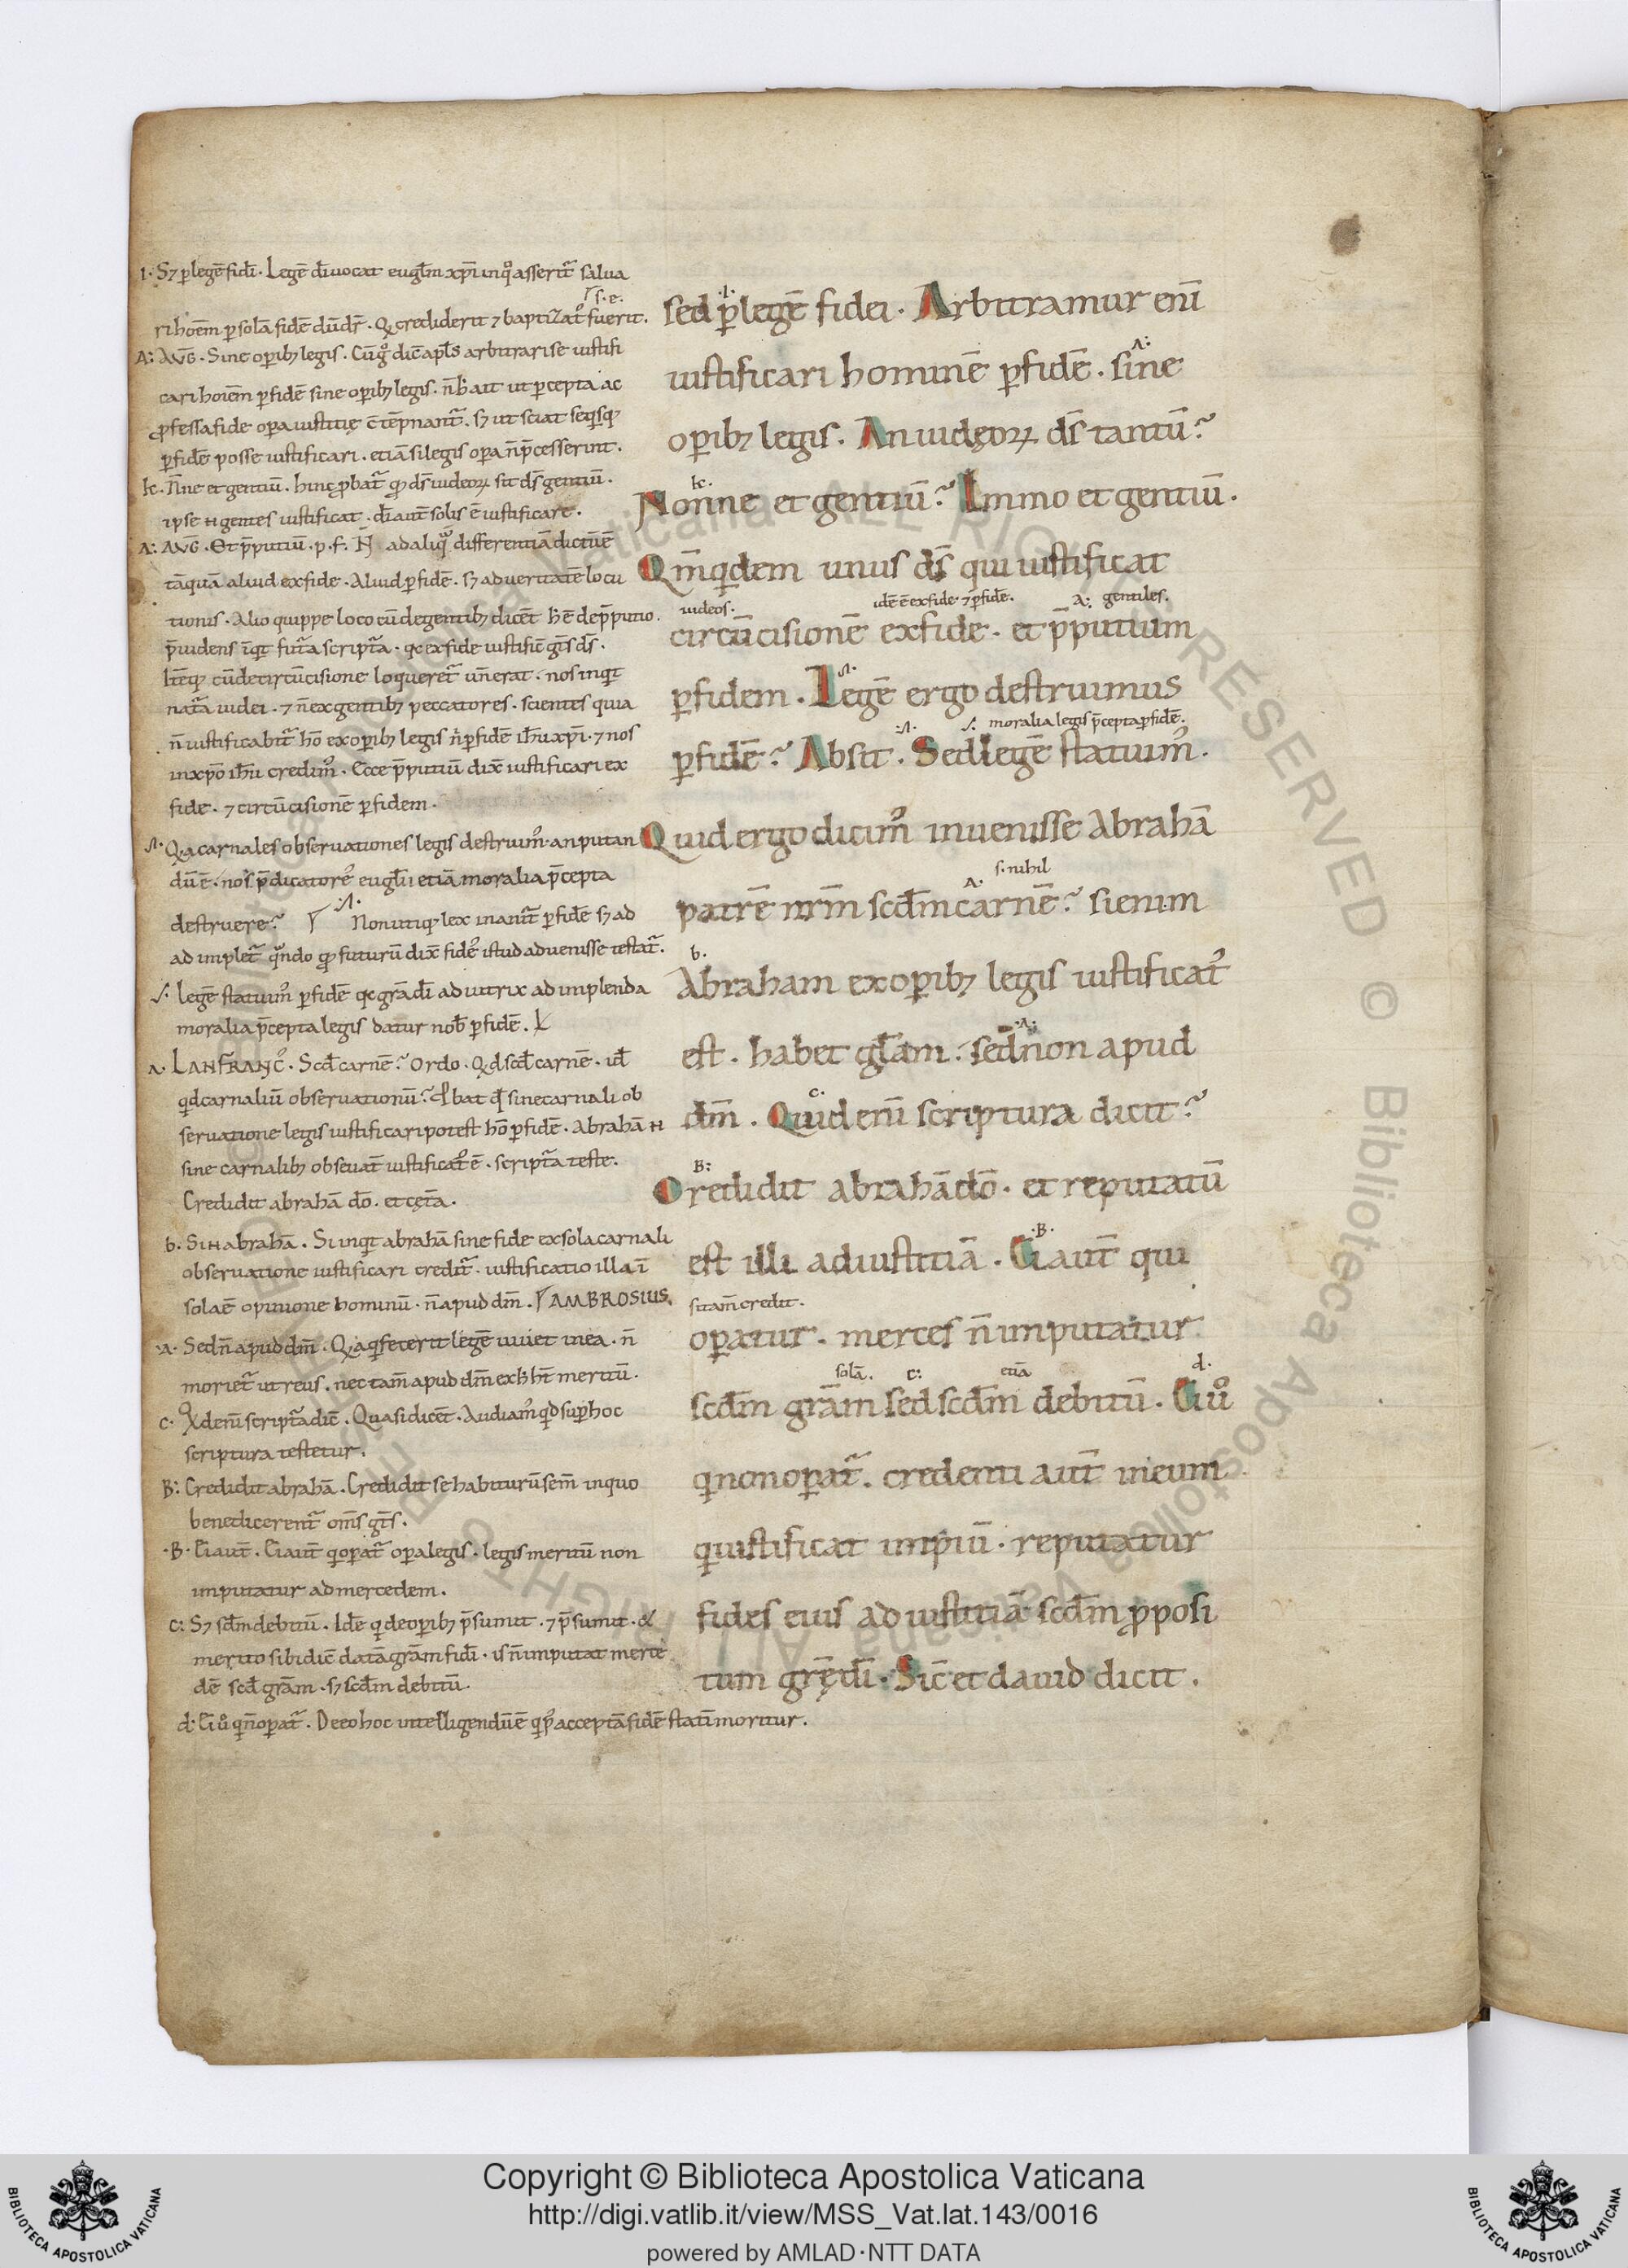 1. Sꝫ ꝑ legē fidī. Legē dī uocat euḡlm xp̄i in qͦ asseritᷣ salua
ri hoīem ꝑ solā fidē dūdr̄. Qͥ crediderit ⁊ baptizatꝰ fuerit.
s. e.
A: AVG̅. Sine oꝑibꝫ legis. Cū gͦ dic̄ apl̄s arbitrari se iustifi
cari hoīem ꝑ fidē sine oꝑibꝫ legis. ut ꝑcepta ac
ꝓfessa fide oꝑa iustitię c̄tēpnantᷣ. sꝫ ut sciat
ꝑ fidē posse iustificari. etiā si legis oꝑa n̄ p̄cesserint.
k. N̄ne et gentiū. hinc ꝓbatᷣ ds̄ iudeoꝝ sit ds̄ gentiū.
ipse gentes iustificat. dī aut̄ solis ē iustificare.
A: AVG̅. Et p̄putiū. p. f. N̄ ad aliquā differentiā dictū ē
tāquā aliud ex fide. Aliud ꝑ fidē. sꝫ ad ueritatē locu
tionis. Alio quippe loco cū de gentibꝫ dicēt ē de p̄putio.
p̄uidens futᷣa scriptᷣa. ex fide iustific̄ gt̄s ds̄.
cū de circūcisione loqueretᷣ. nos inqͥt
natᷣa iudei. ⁊ n̄ ex gentibꝫ peccatores. scientes quia
n̄ iustificabitᷣ hō ex oꝑibꝫ legis nͥ ꝑ fidē ih̄u xp̄i. ⁊ nos
in xp̄o ih̄u credimꝰ. Ecce p̄putiū dix̄ iustificari ex
fide. ⁊ circūcisionē ꝑ fidem.
Qͥa carnales obseruationes legis destruimꝰ. an putan
dū ē. nos p̄dicatores euḡlii etiā moralia p̄cepta
destruere? Non utiqꝫ lex inanitᷣ ꝑ fidē sꝫ ad
ad impletᷣ qᷓndo futurū dix̄ istud aduenisse testatᷣ.
Legē statuimꝰ ꝑ fidē grā dī adiutrix ad implenda
moralia p̄cepta legis datur nob̄ ꝑ fidē.
a. LANFRANCꝰ. Scd̄ carnē? Ordo. Qͥd scd̄ carnē. id̄
qͥd carnaliū obseruationū? ꝓbat sine carnali ob
seruatione legis iustificari potest hō ꝑ fidē. Abrahā
sine carnalibꝫ obseuat̄ iustificatꝰ ē. scriptᷣa teste.
Credidit abrahā dō. et cęt̄a.
b. Si abrahā. Si inqͥt abrahā sine fide ex sola carnali
obseruatione iustificari creditᷣ. iustificatio illa ī
sola ē opinione hominū. n̄ apud dm̄. AMBROSIUS.
a. Sed n̄ apud dm̄. Qͥa qͥ fecerit legē uiuiet in ea. n̄
morietᷣ ut reus. nec tam̄ apud dm̄ ex meritū.
c. Qͥd enī scriptᷣa dic̄. Quasi dicēt. Audiamꝰ qͥd suꝑ hoc
scriptura testetur.
B: Credidit abrahā. Credidit se habiturū sem̄ in quo
benedicerentᷣ om̄s gt̄s.
.B. Ei aut̄. Ei aut̄ qͥ oꝑatᷣ oꝑa legis. legis meritū non
imputatur ad mercedem.
c: Sꝫ scd̄m debitū. Idē qͥ de oꝑibꝫ p̄sumit. ⁊ p̄sumit.
merito sibi dic̄ datā grām fidī. is n̄ imputat merce
dē scd̄ grām. sꝫ scd̄m debitū.
d: Ei uͦ qͥ n̄ oꝑatᷣ. De eo hoc intelligendū ē qͥ acceptā fidē statī moritur.
.1.
sed ꝑ legē fidei. Arbitramur enī
A:
iustificari hominē ꝑ fidē. sine
oꝑibꝫ legis. An iudęoꝝ ds̄ tantū?
k.
Nonne et gentiū? Immo et gentiū.
Qm̄ qͥdem unus ds̄ qui iustificat
iudeos. idē ē ex fide ⁊ ꝑ fidē. A: gentiles.
circūcisionē ex fide. et p̄putium
ꝑ fidem. Legē ergo destruimus
moralia legis p̄cepta ꝑ fidē.
ꝑ fidē? Absit. Sed legē statuimꝰ.
Quid ergo dicimꝰ inuenisse Abrahā
A. s. nihil
patrē nr̄m scd̄m carnē? si enim
b.
Abraham ex oꝑibꝫ legis iustificatꝰ
est. habet gl̄am. sed non apud
c.
dm̄. Quid enī scriptura dicit?
B:
Credidit abrahā dō. et reputatū
.B.
est illi ad iustitiā. Ei aut̄ qui
si tam̄ credit.
oꝑatur. merces n̄ imputatur
solā. c: etiā d.
scd̄m grām sed scd̄m debitū. Ei uͦ
qͥ non oꝑatᷣ. credenti aut̄ in eum
qͥ iustificat impiū. reputatur
fides eius ad iustitiā scd̄m ꝓposi
tum grę dī. Sic̄ et dauid dicit.
Copyright © Biblioteca Apostolica Vaticana
http://digi.vatlib.it/view/MSS_Vat.lat.143/0016
powered by AMLAD·NTT DATA
BIBLIOTECA APOSTOLICA VATICANA
BIBLIOTECA APOSTOLICA VATICANA